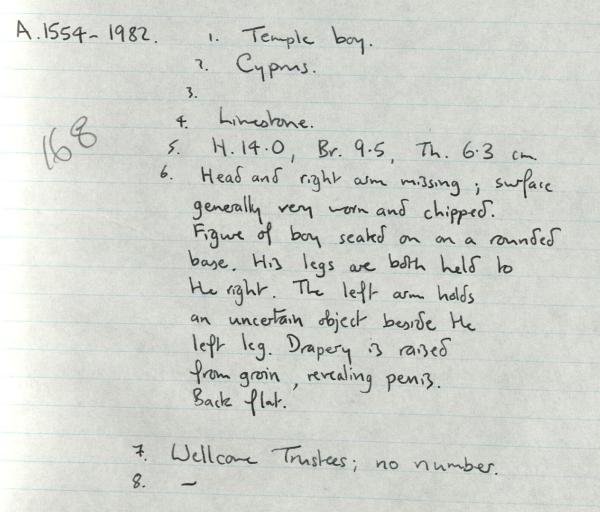 A.1554-1982. 1. Temple boy.
2. Cyprus.
3.
168
4. Limestone.
5. H. 14.0, Br. 9.5, Th. 6.3 cm
6. Head and right arm missing; surface
generally very worn and chipped.
Figure of boy seated on on a rounded
base. His legs are both held to
the right. The left arm holds
an uncertain object beside the
left leg. Drapery is raised
from groin, revealing penis.
Back flat.
7. Wellcome Trustees; no number.
8. -